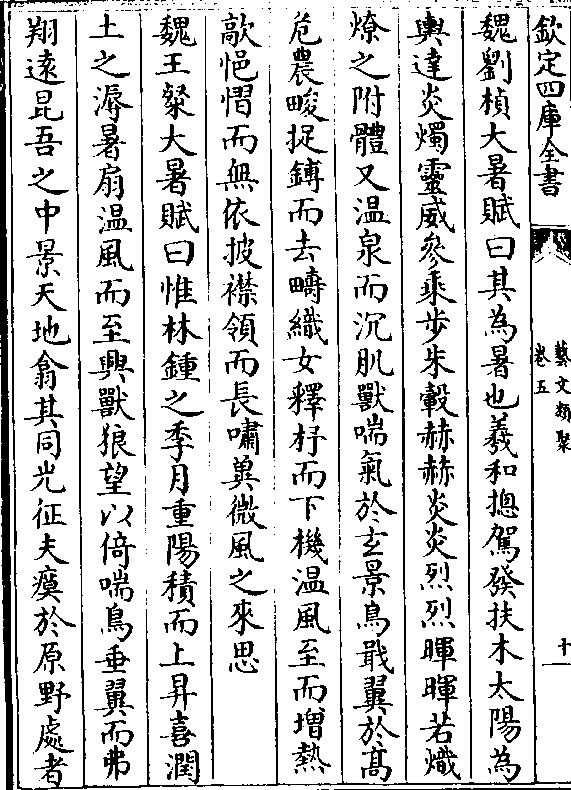 欽定四庫全書
藝文類聚
卷五
十一
魏劉楨大暑賦曰其為暑也羲和揔駕發扶木太陽為
輿達炎燭靈威參乘步朱轂赫赫炎炎烈烈暉暉若熾
燎之附體又温泉而沉肌獸喘氣於玄景鳥戢翼於髙
危農畯捉鎛而去疇織女釋杼而下機温風至而增熱
歊悒慴而無依披襟領而長嘯兾微風之來思
魏王粲大暑賦曰惟林鍾之季月重陽積而上昇喜潤
土之溽暑扇温風而至興獸狼望以倚喘鳥垂翼而弗
翔逺昆吾之中景天地翕其同光征夫瘼於原野處者